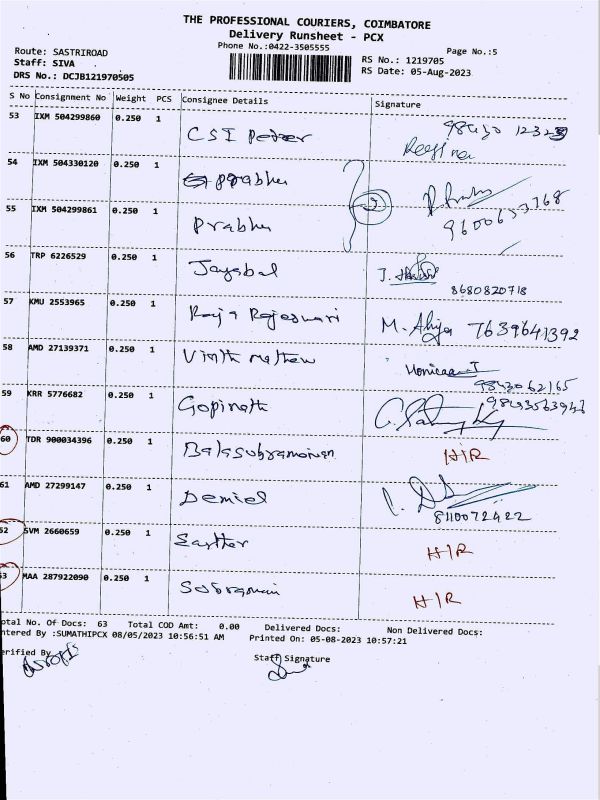 THE PROFESSIONAL COURIERS, COIMBATORE
Delivery Runsheet - PCX
Phone No.:0422-3505555
Page No.:5
Route: SASTRIROAD
Staff: SIVA
DRS No.: DCJB121970505
RS No.: 1219705
RS Date: 05-Aug-2023
S No Consignment No Weight PCS Consignee Details Signature
53 IXM 504299860 0.250 1 CSI
54 IXM 504330120 0.250 1 Prabhu
55 IXM 504299861 0.250 1 Prabhu
56 TRP 6226529 0.250 1 Jayabal 8680820718
57 KMU 2553965 0.250 1 Raja Rajeswari M. 7639641392
58 AMD 27139371 0.250 1 Vinith Mathew 9843062165
59 KRR 5776682 0.250 1 Gopinath
60 TDR 900034396 0.250 1 Balasubramanian H/R
61 AMD 27299147 0.250 1 Demiel 8110072422
62 SVM 2660659 0.250 1 Easther H/R
63 MAA 287922090 0.250 1 Subramani H/R
otal No. Of Docs: 63 Total COD Amt: 0.00 Delivered Docs: Non Delivered Docs:
ntered By :SUMATHIPCX 08/05/2023 10:56:51 AM Printed On: 05-08-2023 10:57:21
erified By
Staff Signature